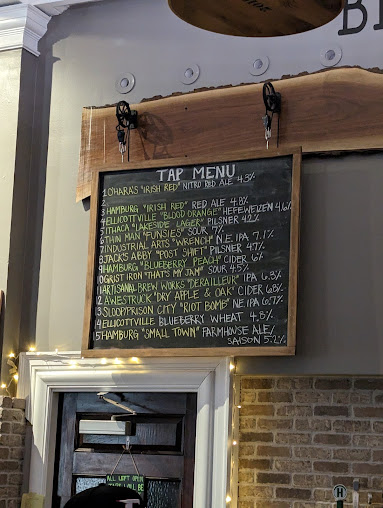 TAP MENU
1 O'HARA'S "IRISH RED" NITRO RED ALE 4.3%
2
3 HAMBURG "IRISH RED" RED ALE 4.8%
4 ELLICOTTVILLE "BLOOD ORANGE" HEFEWEIZEN 4.6%
5 ITHACA "LAKESIDE LAGER" PILSNER 4.2%
6 THIN MAN "FUNSIES" SOUR 7%
7 INDUSTRIAL ARTS "WRENCH" N.E IPA 7.1%
8 JACK'S ABBY "POST SHIFT" PILSNER 4.7%
9 HAMBURG "BLUEBERRY PEACH" CIDER 6%
10 GRIST IRON "THAT'S MY JAM" SOUR 4.5%
11 ARTISANAL BREW WORKS "DERAILLEUR" IPA 6.3%
12 AWESTRUCK "DRY APPLE & OAK" CIDER 6.8%
13 SLOOP/PRISON CITY "RIOT BOMB" N.E IPA 6.7%
14 ELLICOTTVILLE BLUEBERRY WHEAT 4.8%
15 HAMBURG "SMALL TOWN" FARMHOUSE ALE/
SAISON 5.2%
ALL LEFT OPEN
WILL BE